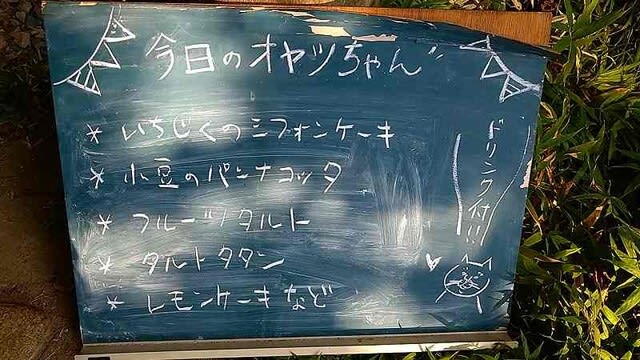 今日のオヤツちゃん
* いちじくのシフォンケーキ
* 小豆のパンナコッタ
* フルーツタルト
* タルトタタン
* レモンケーキなど
ドリンク付!!